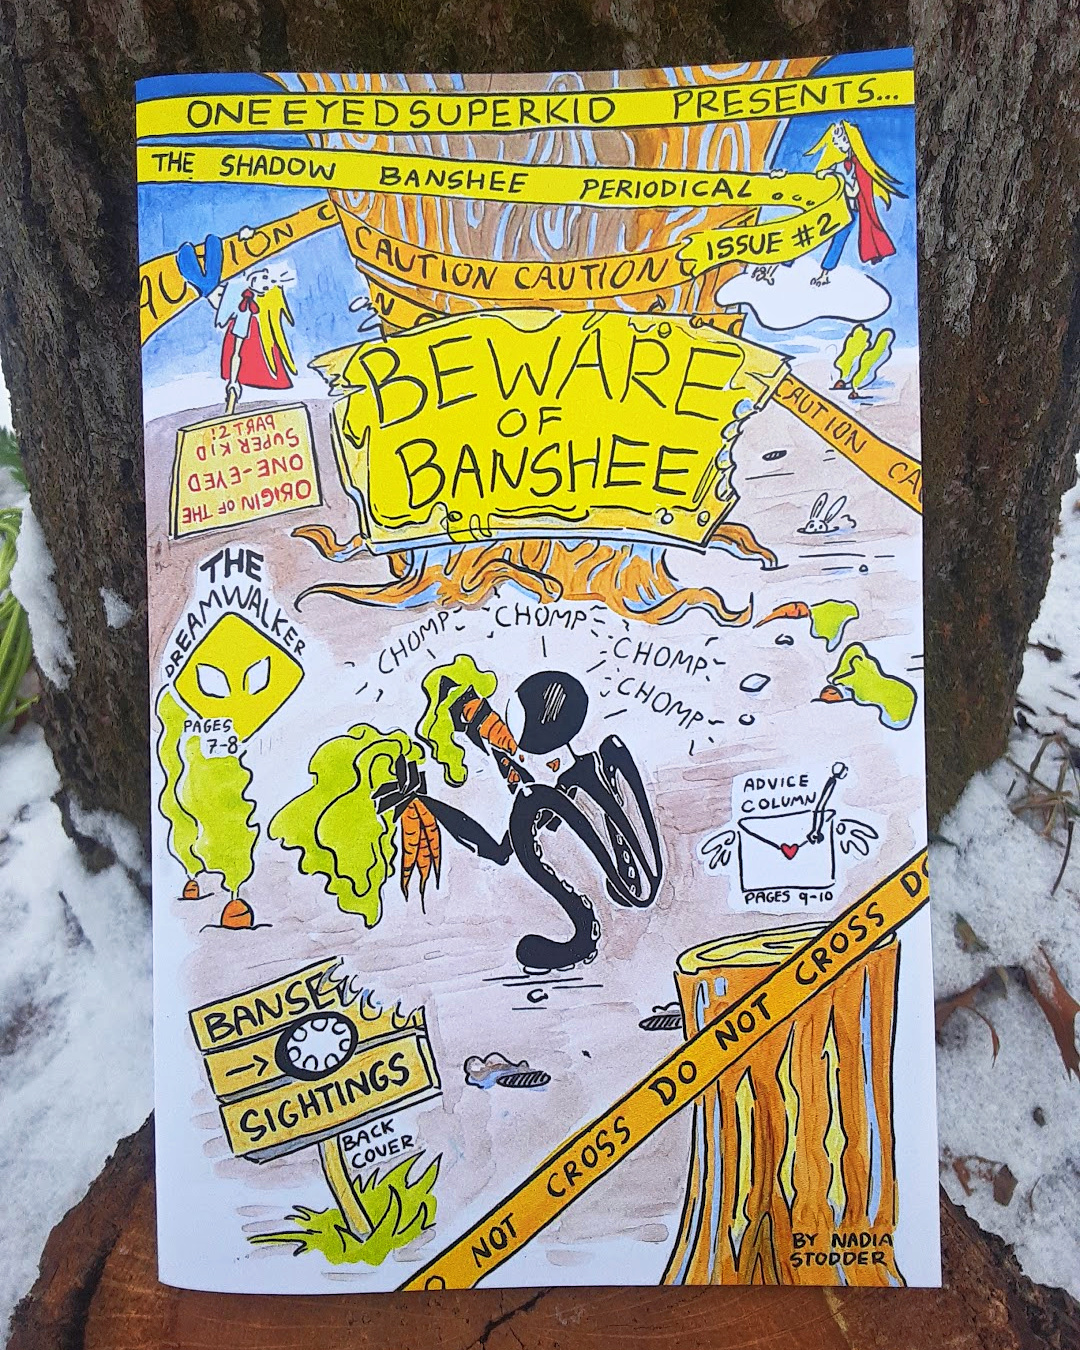 ONE EYED SUPERKID PRESENTS...
THE SHADOW BANSHEE PERIODICAL...
ISSUE #2
CAUTION
CAUTION CAUTION
BEWARE
OF
BANSHEE
CAUTION CA
ORIGIN OF THE
ONE-EYED
SUPER KID
PART 2!
THE
DREAMWALKER
PAGES
7-8
CHOMP
CHOMP
CHOMP
CHOMP
ADVICE
COLUMN
PAGES 9-10
BANSEE
SIGHTINGS
BACK
COVER
NOT CROSS DO NOT CROSS DO
BY NADIA
STODDER